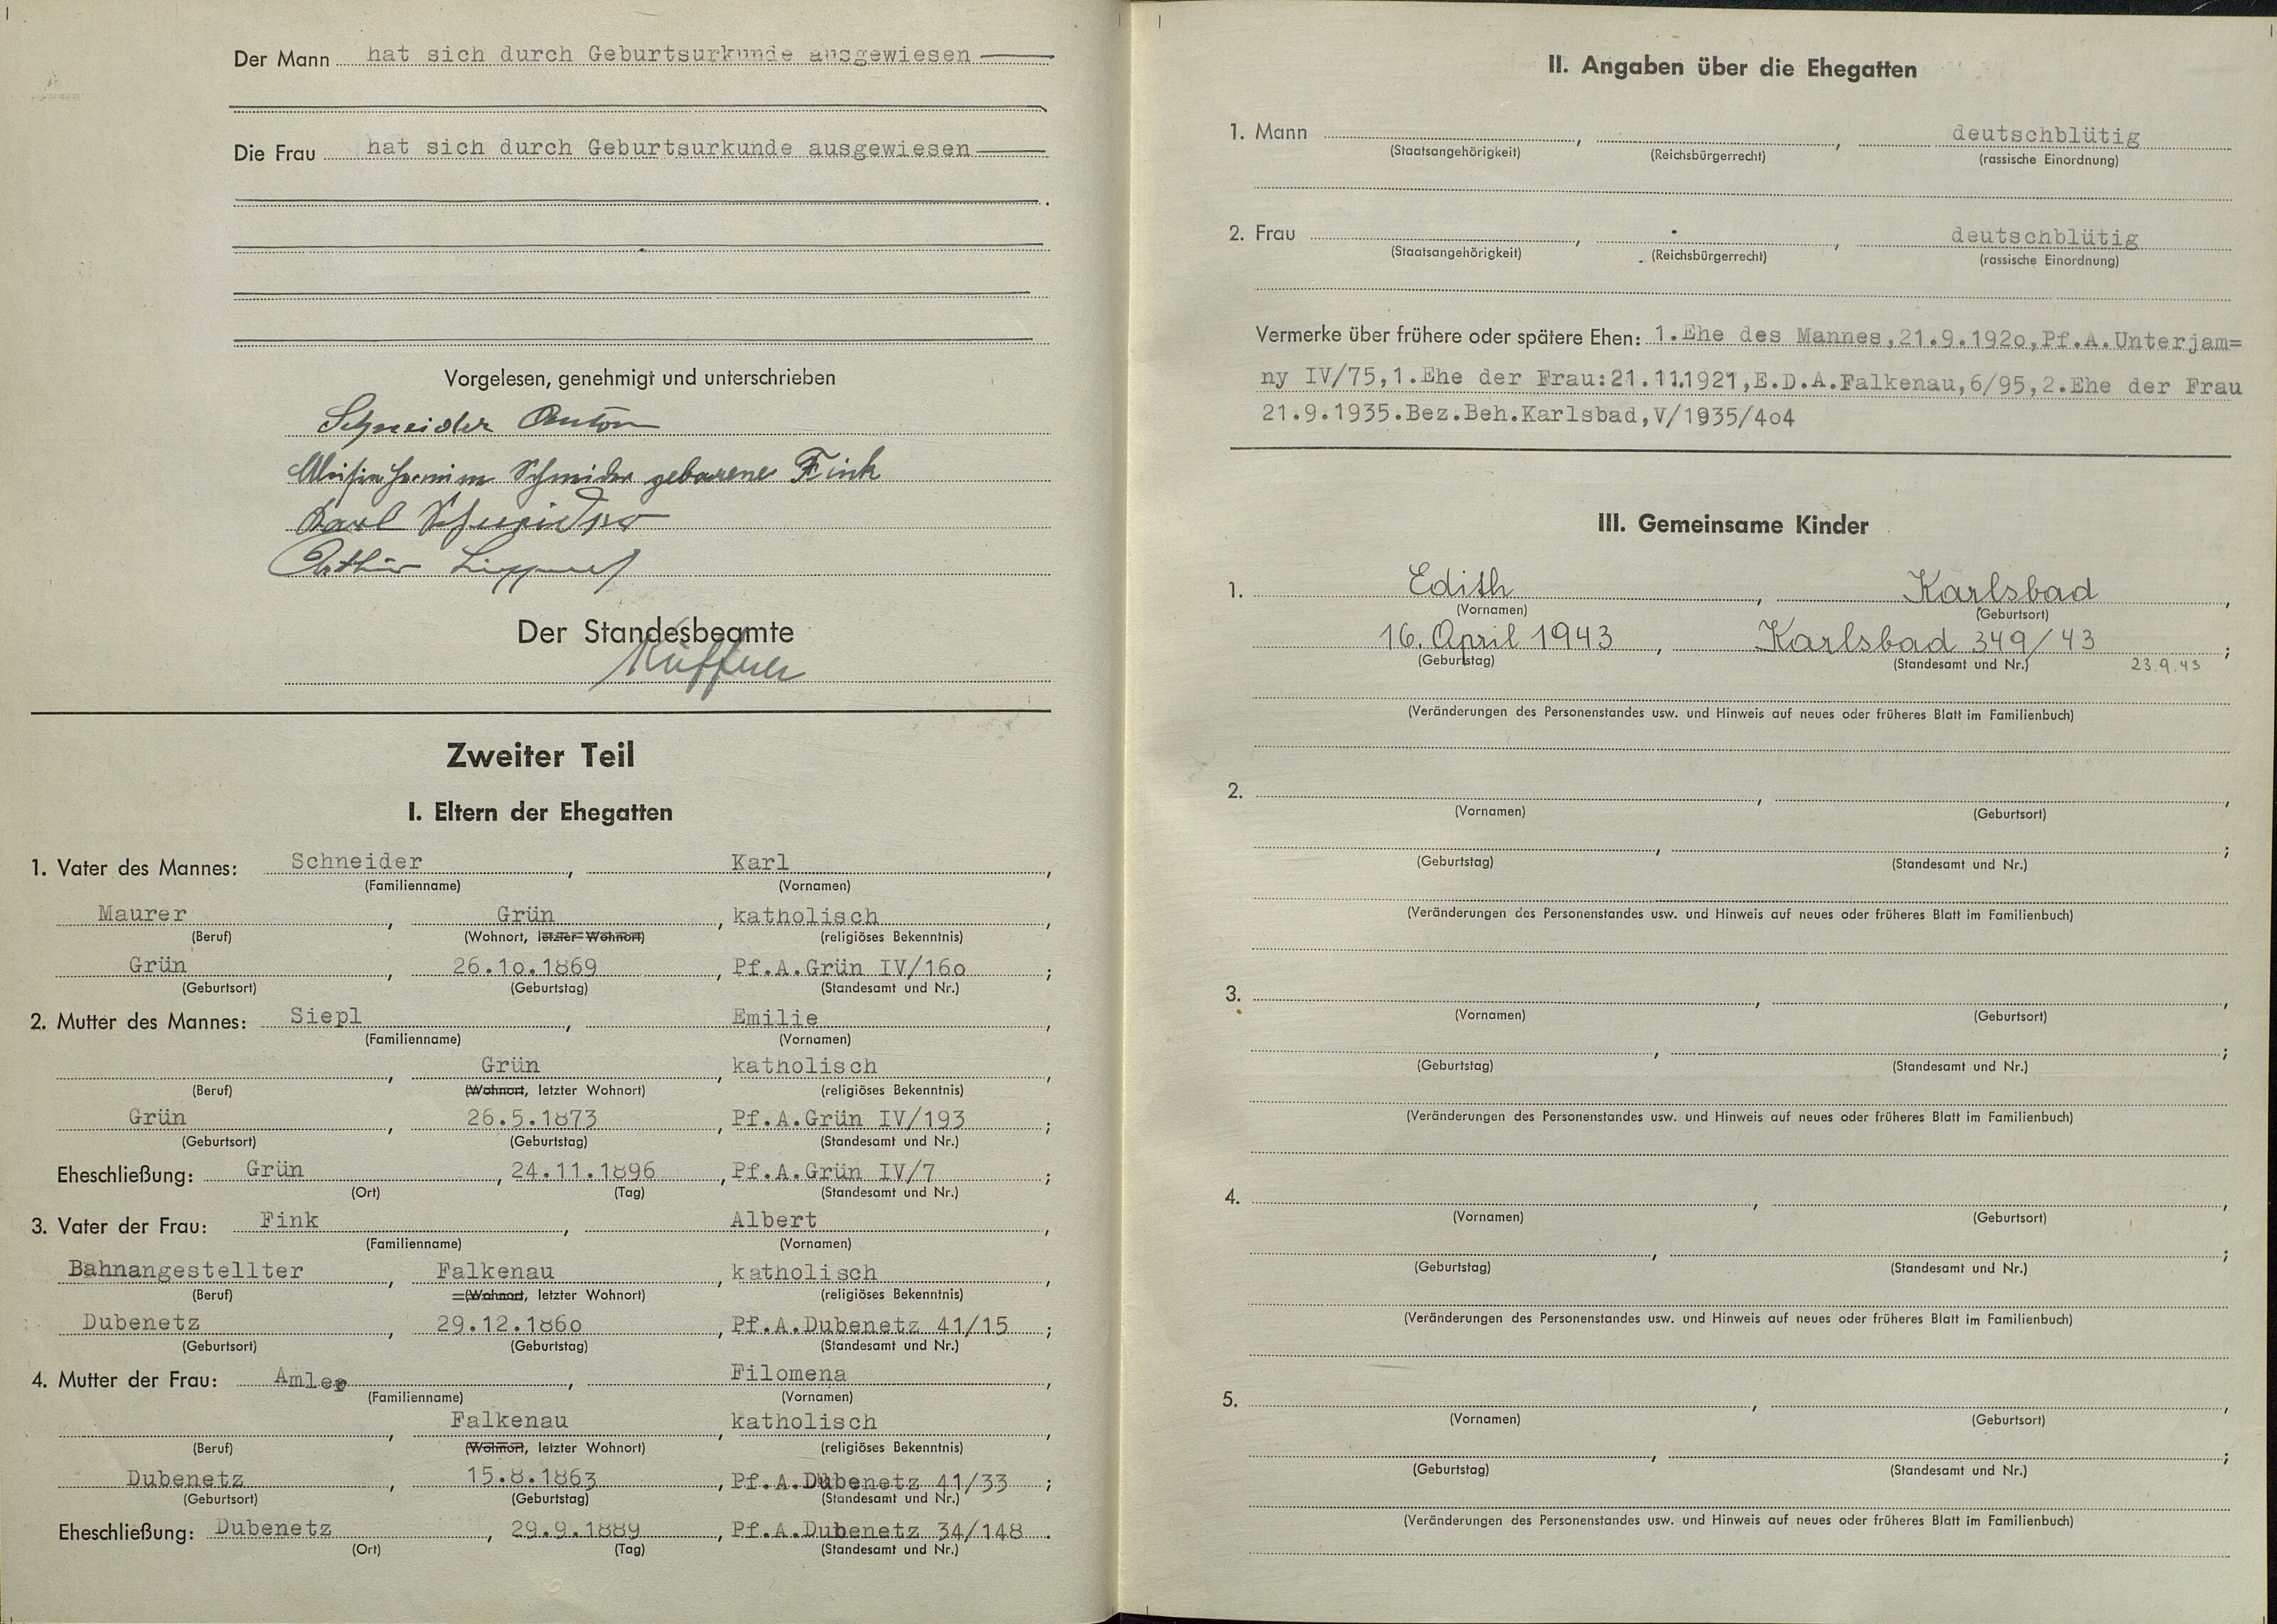 Der Mann hat sich durch Geburtsurkunde ausgewiesen
Die Frau hat sich durch Geburtsurkunde ausgewiesen
Vorgelesen, genehmigt und unterschrieben
Schneider Anton
Schneider geborene Fink
Karl Schneider
Arthur
Der Standesbeamte
Zweiter Teil
I. Eltern der Ehegatten
1. Vater des Mannes: Schneider, Karl,
(Familienname) (Vornamen)
Maurer, Grün, katholisch,
(Beruf) (Wohnort, letzter Wohnort) (religiöses Bekenntnis)
Grün, 26.1o.1869, Pf.A.Grün IV/16o;
(Geburtsort) (Geburtstag) (Standesamt und Nr.)
2. Mutter des Mannes: Siepl, Emilie,
(Familienname) (Vornamen)
, Grün, katholisch,
(Beruf) (Wohnort, letzter Wohnort) (religiöses Bekenntnis)
Grün, 26.5.1873, Pf.A.Grün IV/193;
(Geburtsort) (Geburtstag) (Standesamt und Nr.)
Eheschließung: Grün, 24.11.1896, Pf.A.Grün IV/7;
(Ort) (Tag) (Standesamt und Nr.)
3. Vater der Frau: Fink, Albert,
(Familienname) (Vornamen)
Bahnangestellter, Falkenau, katholisch,
(Beruf) (Wohnort, letzter Wohnort) (religiöses Bekenntnis)
Dubenetz, 29.12.186o, Pf.A.Dubenetz 41/15;
(Geburtsort) (Geburtstag) (Standesamt und Nr.)
4. Mutter der Frau: Amler, Filomena,
(Familienname) (Vornamen)
, Falkenau, katholisch,
(Beruf) (Wohnort, letzter Wohnort) (religiöses Bekenntnis)
Dubenetz, 15.8.1863, Pf.A.Dubenetz 41/33;
(Geburtsort) (Geburtstag) (Standesamt und Nr.)
Eheschließung: Dubenetz, 29.9.1889, Pf.A.Dubenetz 34/148.
(Ort) (Tag) (Standesamt und Nr.)
II. Angaben über die Ehegatten
1. Mann , , deutschblütig
(Staatsangehörigkeit) (Reichsbürgerrecht) (rassische Einordnung)
2. Frau , , deutschblütig
(Staatsangehörigkeit) (Reichsbürgerrecht) (rassische Einordnung)
Vermerke über frühere oder spätere Ehen: 1.Ehe des Mannes,21.9.192o,Pf.A.Unterjam=
ny IV/75,1.Ehe der Frau:21.11.1921,E.D.A.Falkenau,6/95,2.Ehe der Frau
21.9.1935.Bez.Beh.Karlsbad,V/1935/4o4
III. Gemeinsame Kinder
1. Edith, Karlsbad,
(Vornamen) (Geburtsort)
16. April 1943, Karlsbad 349/43;
(Geburtstag) (Standesamt und Nr.) 23.9.43
(Veränderungen des Personenstandes usw. und Hinweis auf neues oder früheres Blatt im Familienbuch)
2. , ,
(Vornamen) (Geburtsort)
, ;
(Geburtstag) (Standesamt und Nr.)
(Veränderungen des Personenstandes usw. und Hinweis auf neues oder früheres Blatt im Familienbuch)
3. , ,
(Vornamen) (Geburtsort)
, ;
(Geburtstag) (Standesamt und Nr.)
(Veränderungen des Personenstandes usw. und Hinweis auf neues oder früheres Blatt im Familienbuch)
4. , ,
(Vornamen) (Geburtsort)
, ;
(Geburtstag) (Standesamt und Nr.)
(Veränderungen des Personenstandes usw. und Hinweis auf neues oder früheres Blatt im Familienbuch)
5. , ,
(Vornamen) (Geburtsort)
, ;
(Geburtstag) (Standesamt und Nr.)
(Veränderungen des Personenstandes usw. und Hinweis auf neues oder früheres Blatt im Familienbuch)